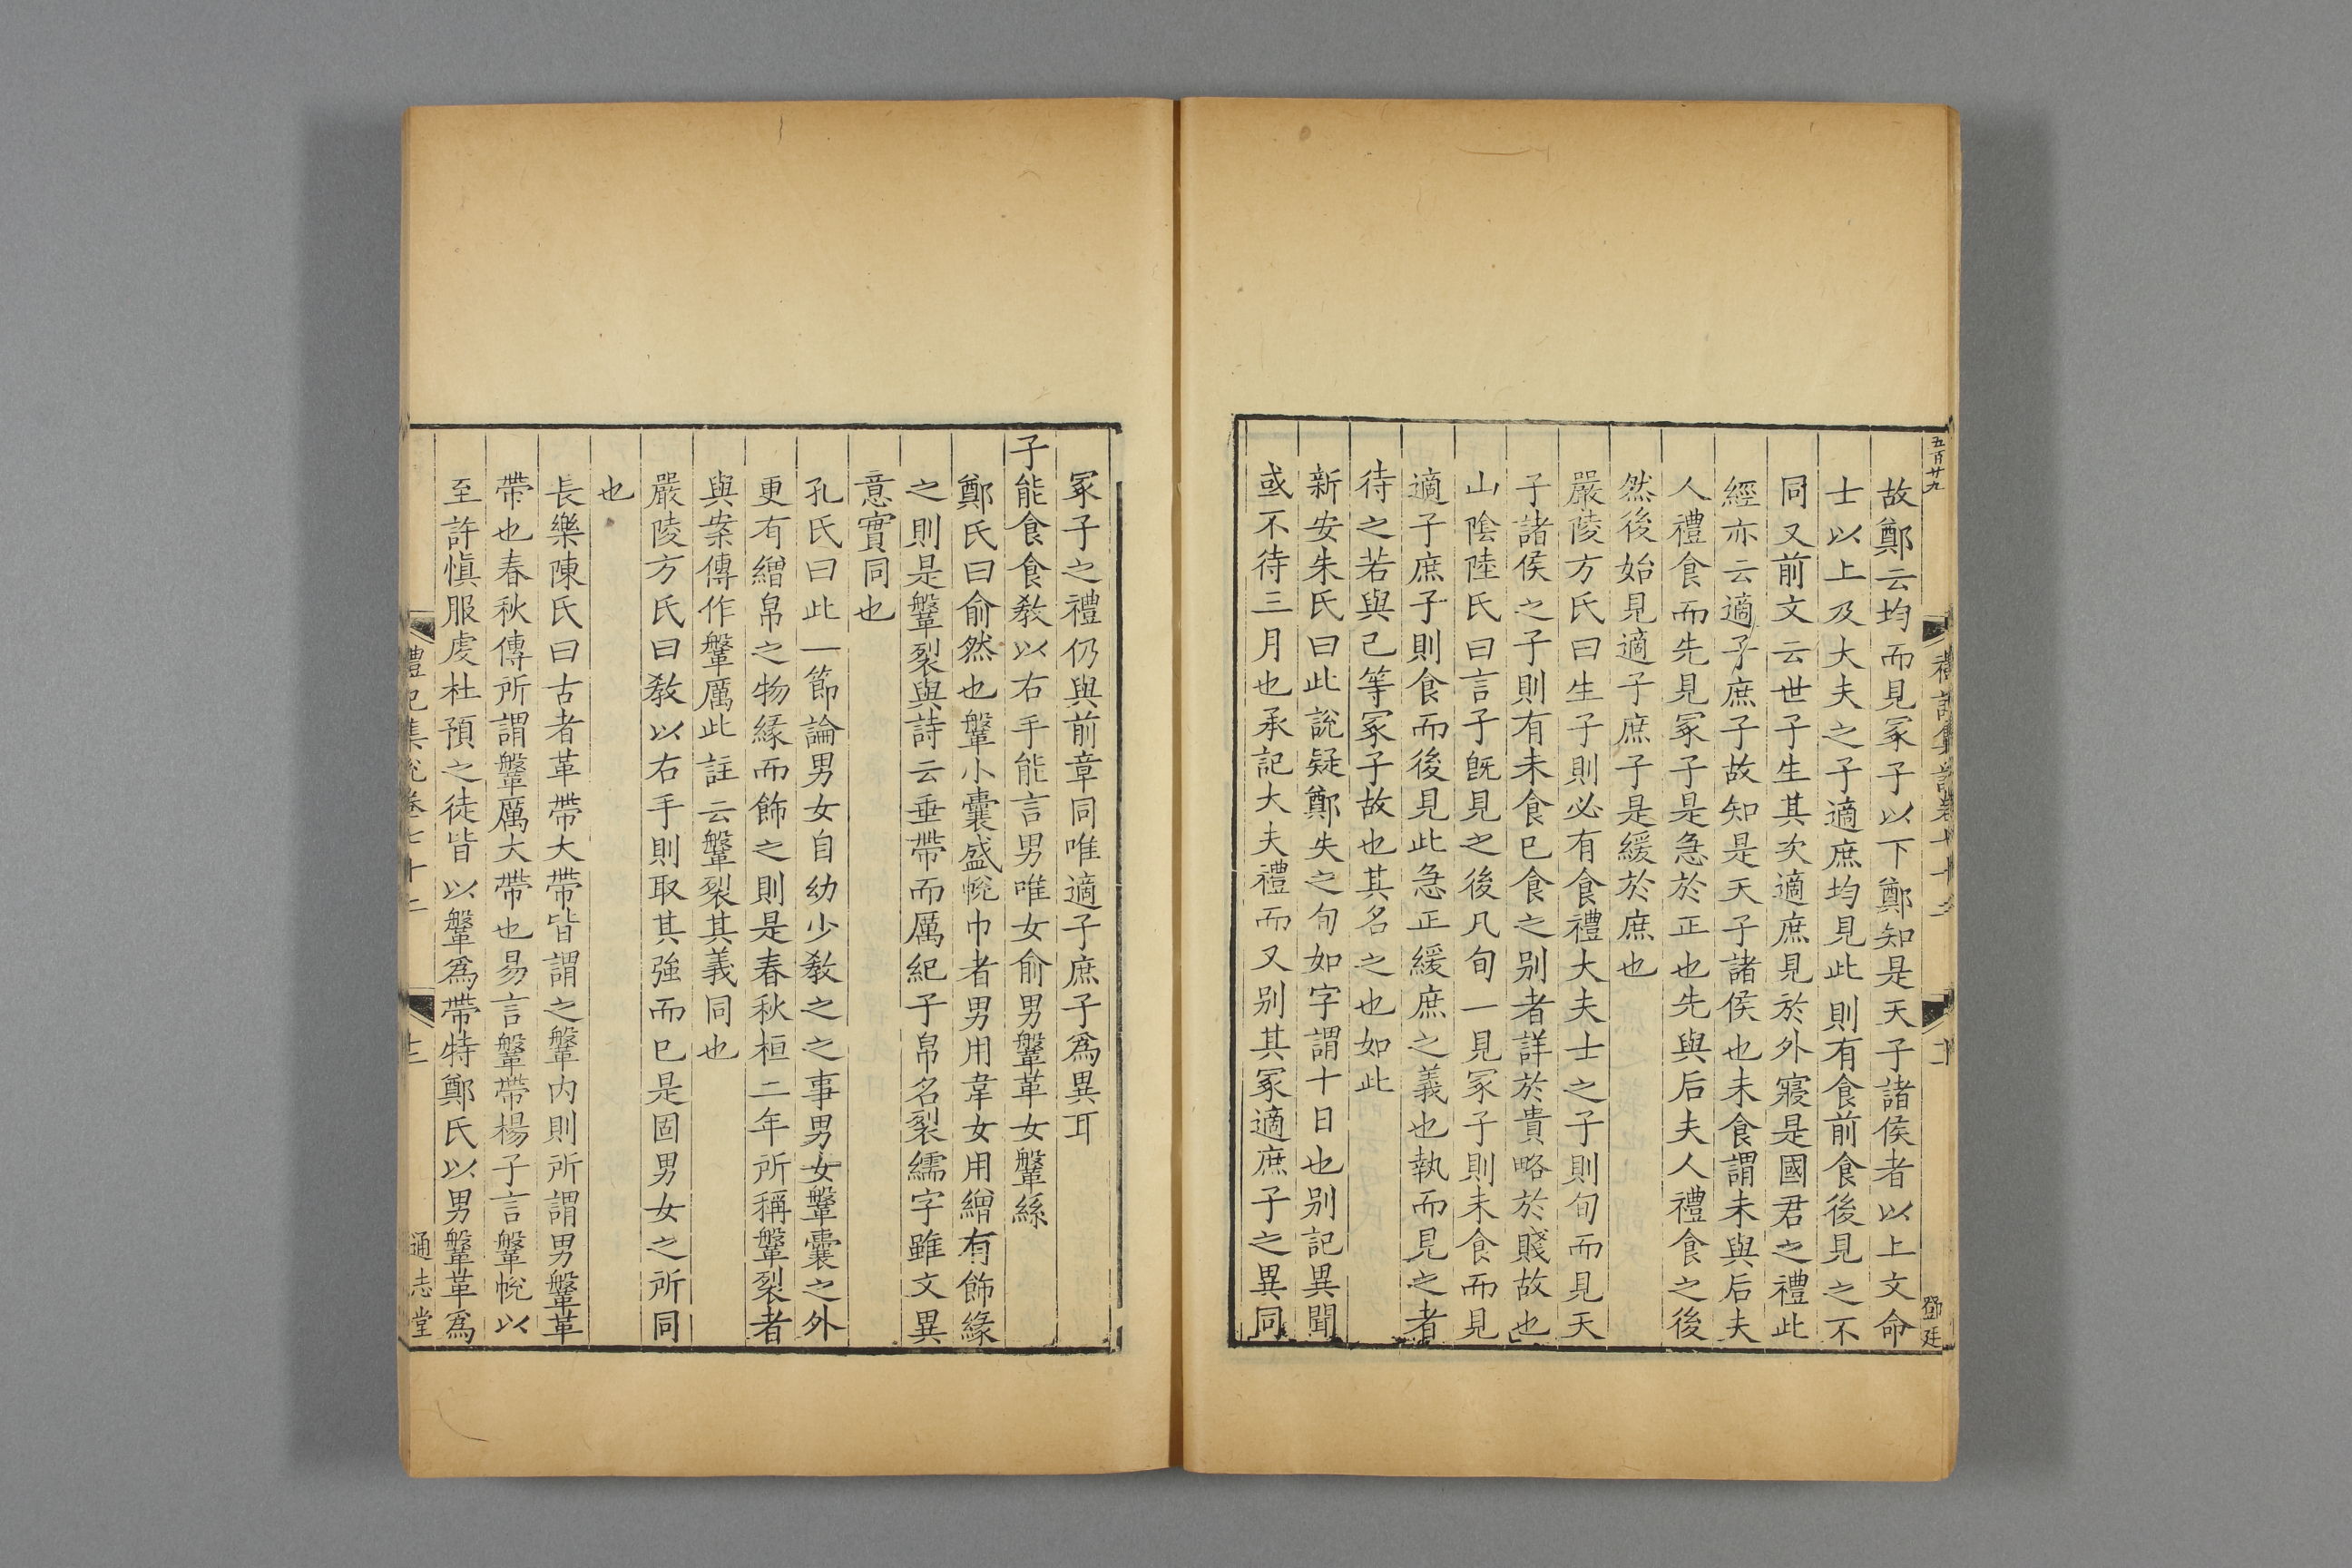 五百廿九
故鄭云均而見冢子以下鄭知是天子諸侯者以上文命
士以上及大夫之子適庶均見此則有食前食後見之不
同又前文云世子生其次適庶見於外寢是國君之禮此
經亦云適子庶子故知是天子諸侯也未食謂未與后夫
人禮食而先見冢子是急於正也先與后夫人禮食之後
然後始見適子庶子是緩於庶也
嚴陵方氏曰生子則必有食禮大夫士之子則旬而見天
子諸侯之子則有未食已食之别者詳於貴略於賤故也
山陰陸氏曰言子旣見之後凡旬一見冢子則未食而見
適子庶子則食而後見此急正緩庶之義也執而見之者
待之若與己等冢子故也其名之也如此
新安朱氏曰此說疑鄭失之旬如字謂十日也别記異聞
或不待三月也承記大夫禮而又别其冢適庶子之異同
鄧廷
冢子之禮仍與前章同唯適子庶子爲異耳
子能食食教以右手能言男唯女俞男鞶革女鞶絲
鄭氏曰俞然也鞶小囊盛帨巾者男用韋女用繒有飾緣
之則是鞶裂與詩云垂帶而厲紀子帛名裂繻字雖文異
意實同也
孔氏曰此一節論男女自幼少教之之事男女鞶囊之外
更有繒帛之物緣而飾之則是春秋桓二年所稱鞶裂者
與案傳作鞶厲此註云鞶裂其義同也
嚴陵方氏曰教以右手則取其強而已是固男女之所同
也
長樂陳氏曰古者革帶大帶皆謂之鞶内則所謂男鞶革
帶也春秋傳所謂鞶厲大帶也易言鞶帶楊子言鞶帨以
至許愼服虔杜預之徒皆以鞶爲帶特鄭氏以男鞶革爲
禮記集說卷七十二
通志堂